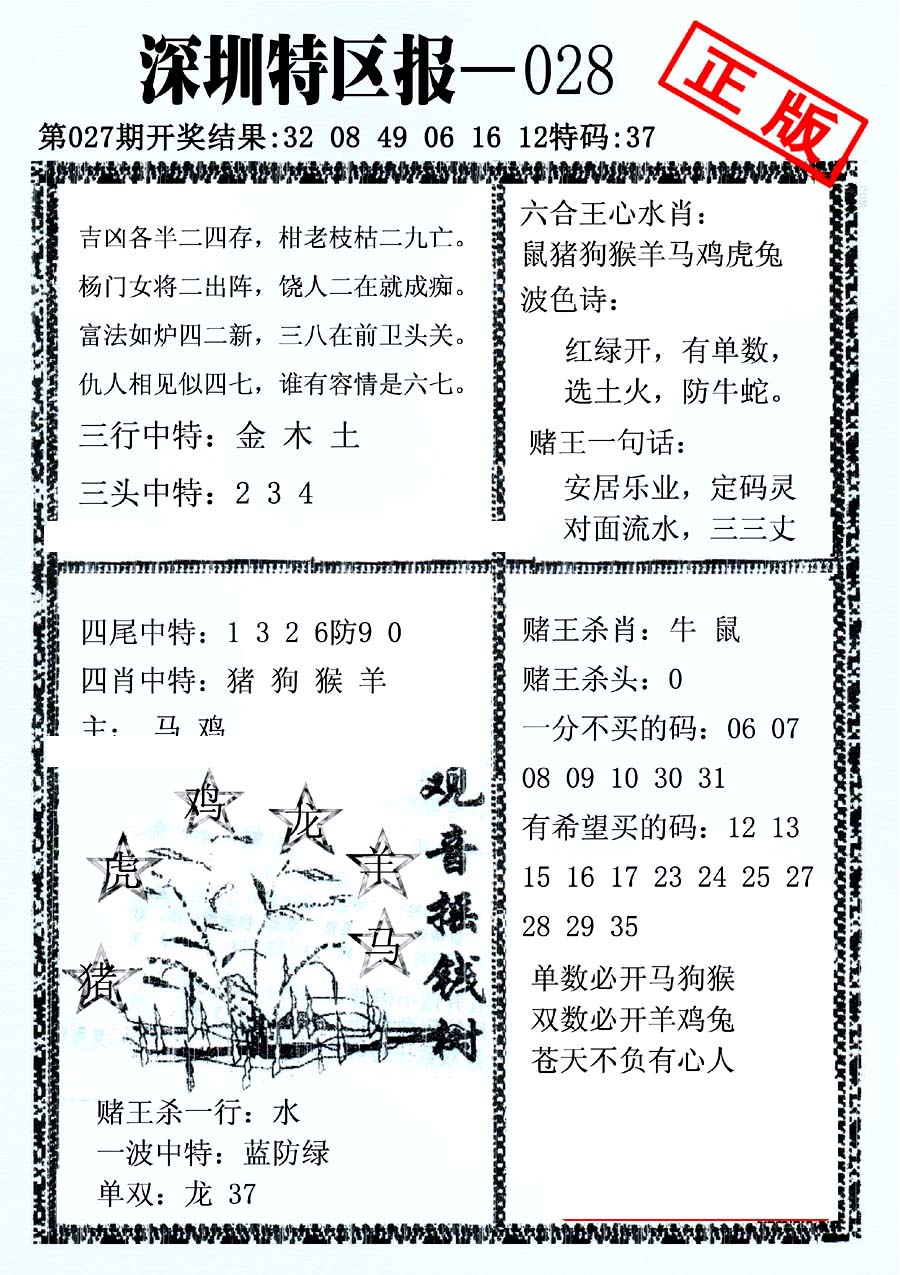 深圳特区报—028
正版
第027期开奖结果:32 08 49 06 16 12特码:37
吉凶各半二四存，柑老枝枯二九亡。
杨门女将二出阵，饶人二在就成痴。
富法如炉四二新，三八在前卫头关。
仇人相见似四七，谁有容情是六七。
三行中特：金 木 土
三头中特：2 3 4
六合王心水肖：
鼠猪狗猴羊马鸡虎兔
波色诗：
红绿开，有单数，
选土火，防牛蛇。
赌王一句话：
安居乐业，定码灵
对面流水，三三丈
四尾中特：1 3 2 6防9 0
四肖中特：猪 狗 猴 羊
主： 马 鸡
观音摇钱树
鸡
龙
虎
羊
马
猪
赌王杀一行：水
一波中特：蓝防绿
单双：龙 37
赌王杀肖：牛 鼠
赌王杀头：0
一分不买的码：06 07
08 09 10 30 31
有希望买的码：12 13
15 16 17 23 24 25 27
28 29 35
单数必开马狗猴
双数必开羊鸡兔
苍天不负有心人